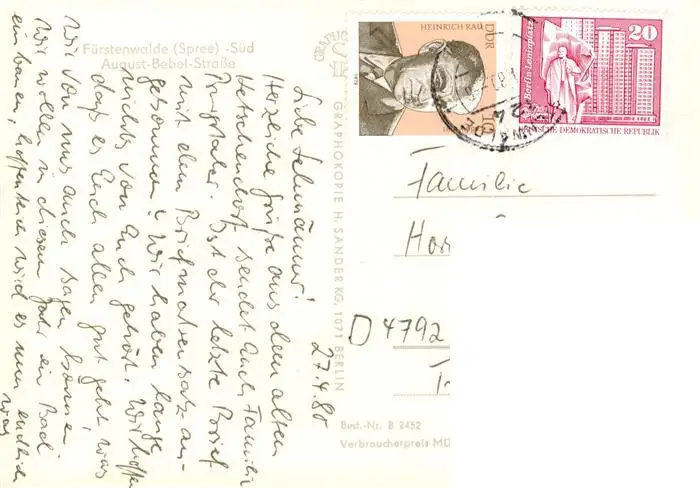 Fürstenwalde (Spree) -Süd
August-Bebel-Straße
27.4.80
Liebe
Herzliche Grüße aus dem alten
Ketschendorf sendet Euch Familie
Ist der letzte Brief
mit dem Briefmarkensatz an-
gekommen? Wir haben lange
nichts von Euch gehört. Wir hoffen
daß es Euch allen gut geht, was
wir von uns auch sagen können.
Wir wollen in diesem Jahr ein Bad
einbauen, hoffentlich wird es nun endlich
was
GRAPHOKOPIE H. SANDER KG, 1071 BERLIN
Best.-Nr. B 2452
Verbraucherpreis
HEINRICH RAU
DDR
10
20
Berlin-Leninplatz
DEUTSCHE DEMOKRATISCHE REPUBLIK
Familie
D 4792